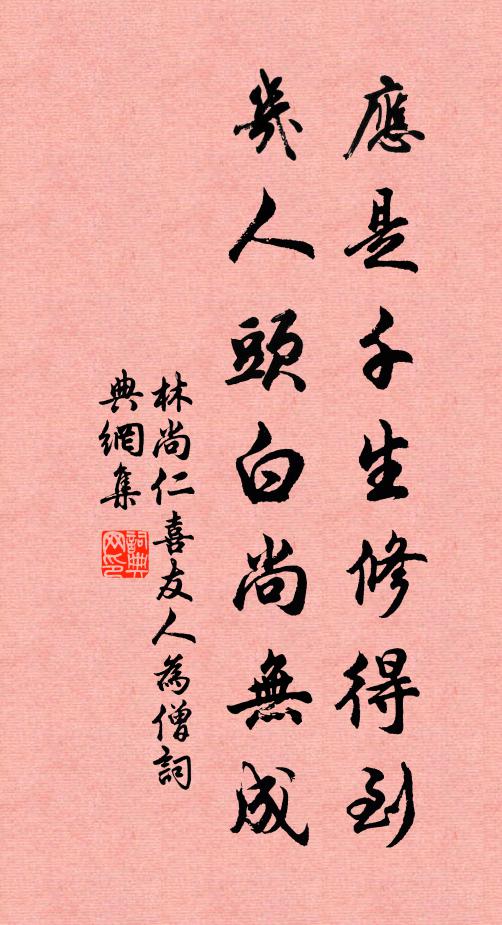 應是千生修得到
幾人頭白尚無成
林尚仁喜友人為僧詞
典網集
詞典网印